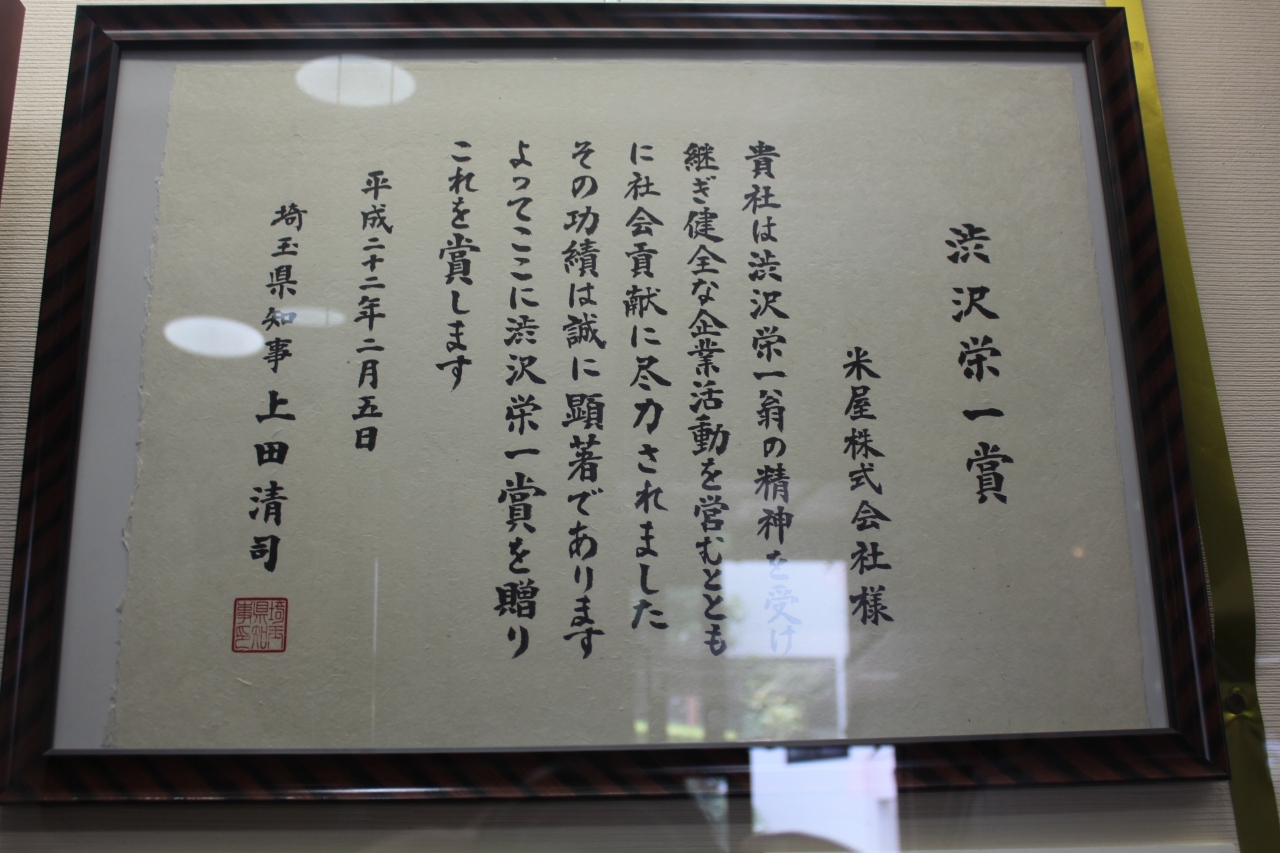 渋沢栄一賞
米屋株式会社様
貴社は渋沢栄一翁の精神を受け
継ぎ健全な企業活動を営むととも
に社会貢献に尽力されました
その功績は誠に顕著であります
よってここに渋沢栄一賞を贈り
これを賞します
平成二十二年二月五日
埼玉県知事 上田清司
埼玉県知事印